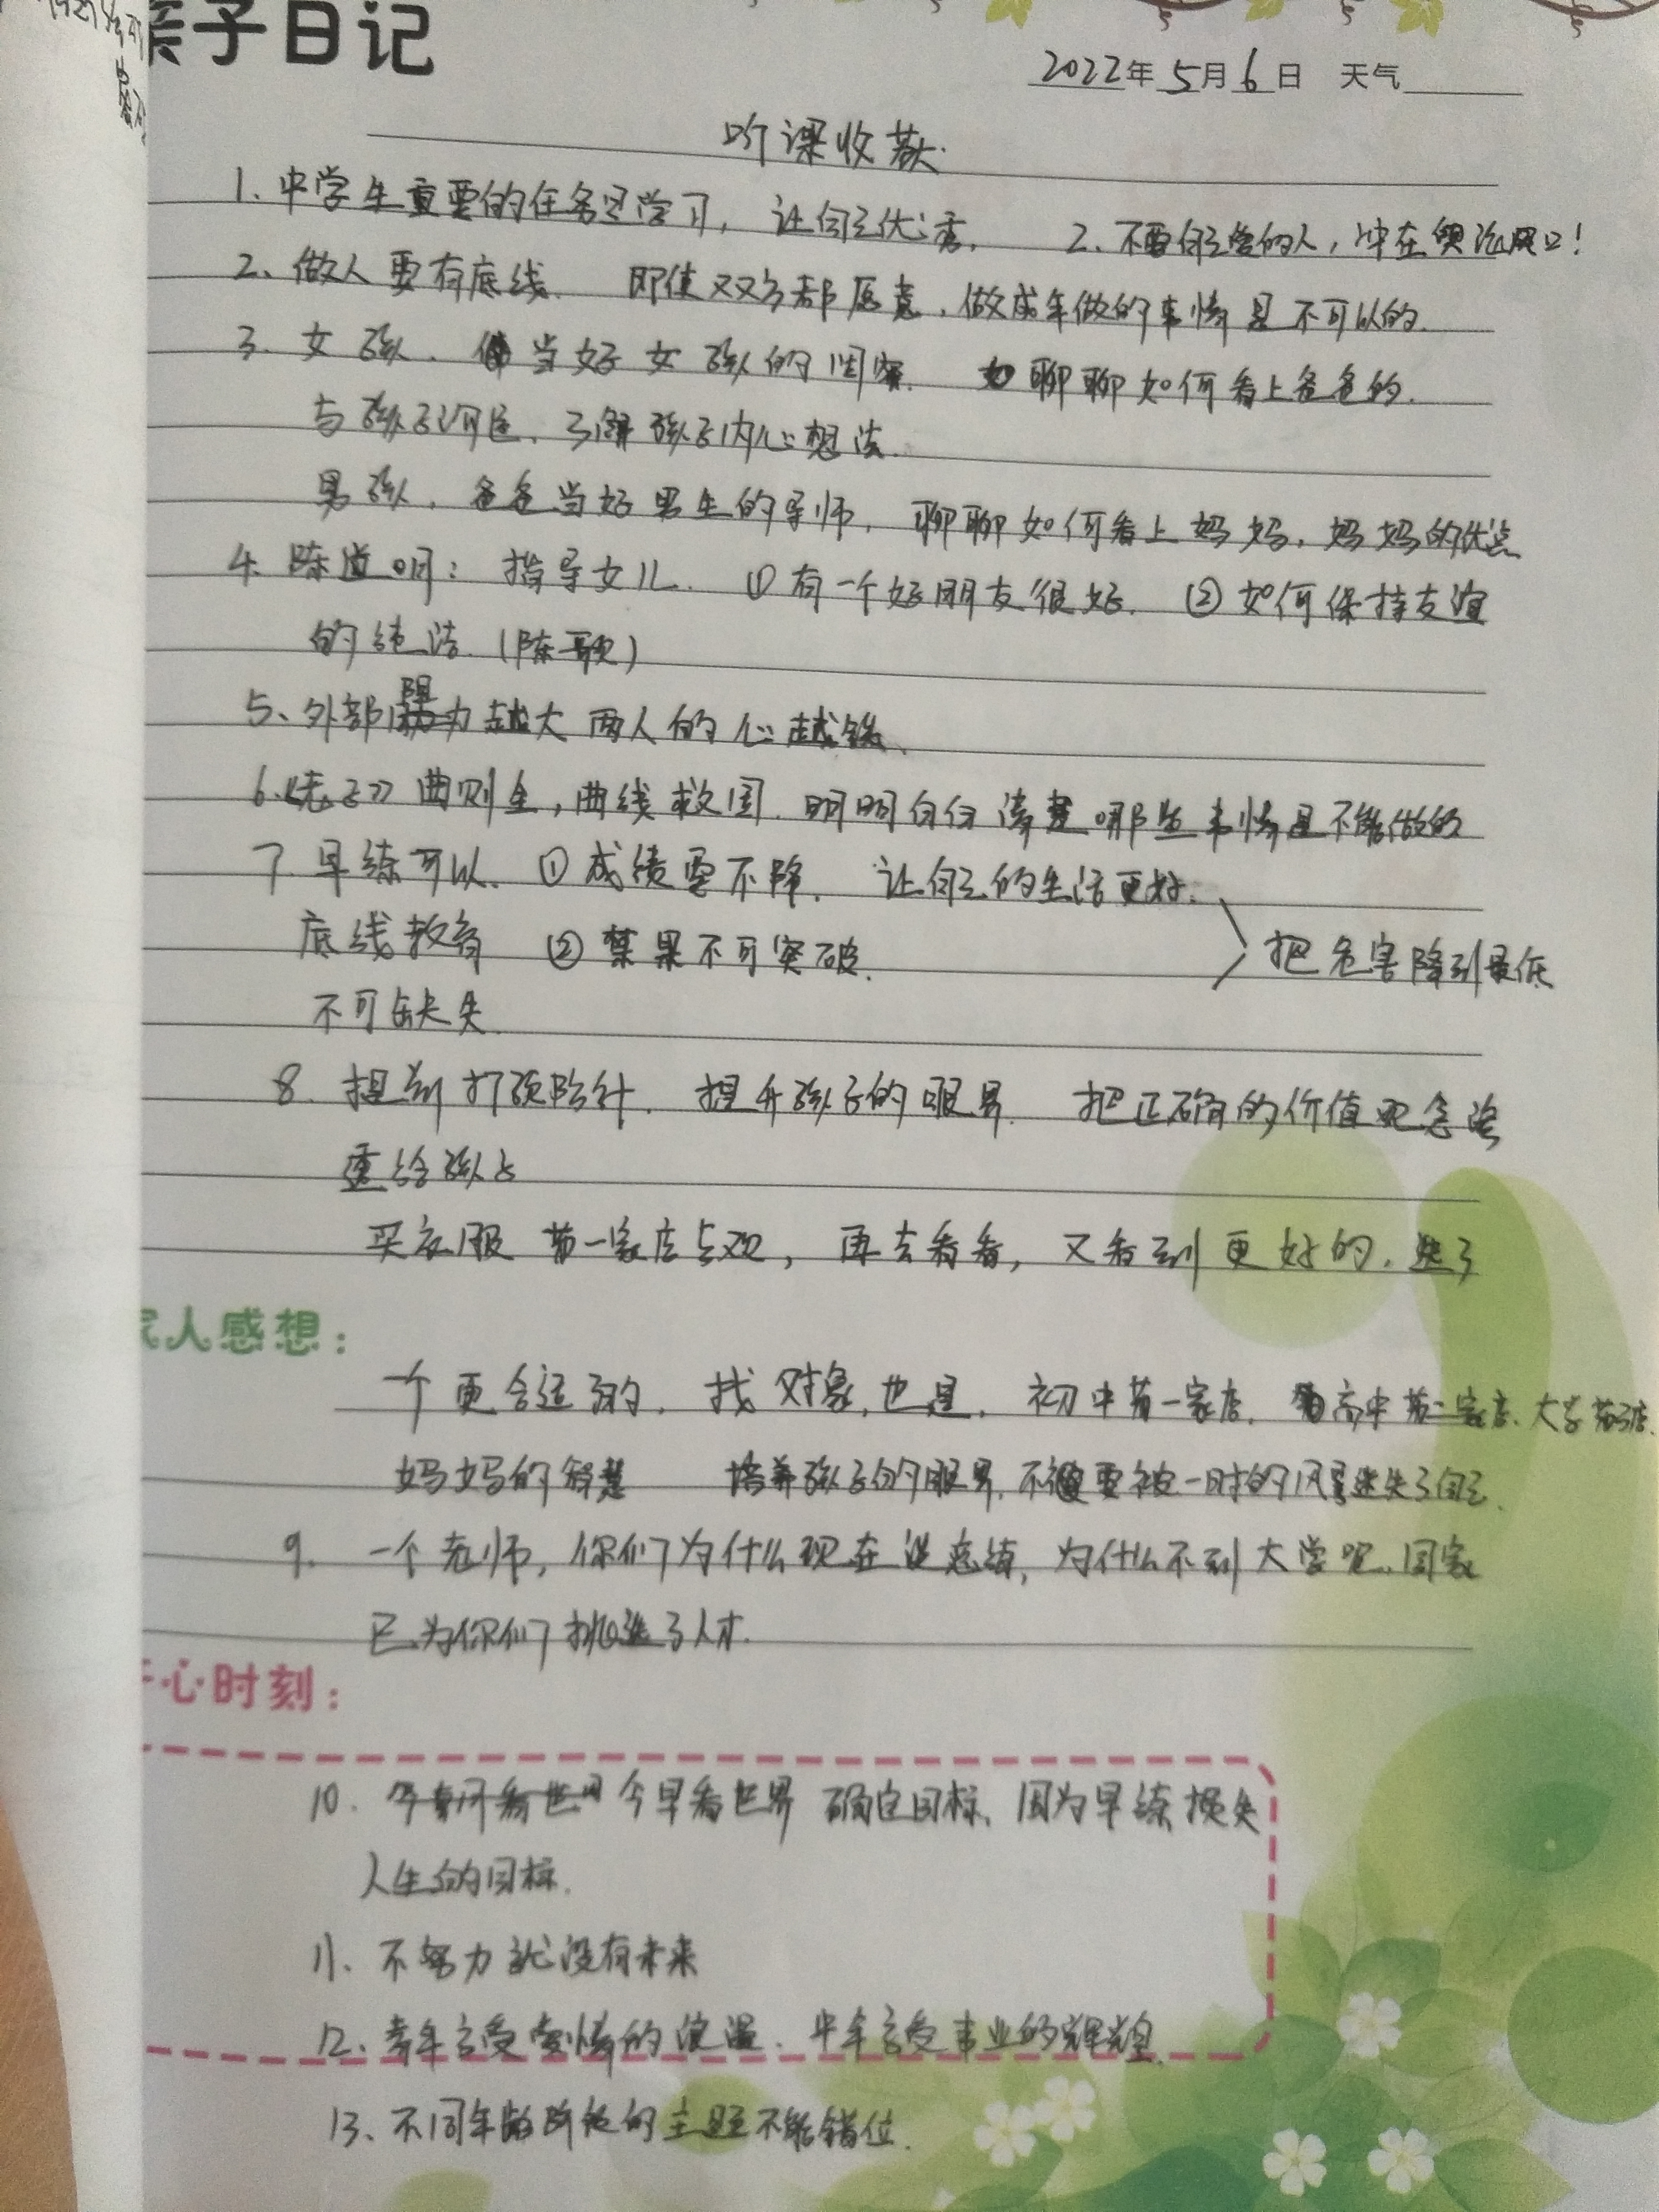 亲子日记
2022年5月6日 天气
听课收获
1. 中学生重要的任务是学习，让自己优秀. 2. 不要自己爱的人，冲在舆论风口！
2、做人要有底线. 即使双方都愿意，做成年做的事情是不可以的.
3. 女孩. 当好女孩的闺蜜. 如聊聊如何看上爸爸的.
与孩子沟通、了解孩子内心想法.
男孩，爸爸当好男生的导师，聊聊如何看上妈妈，妈妈的优点
4. 陈道明：指导女儿. ①有一个好朋友很好. ②如何保持友谊
的纯洁.（陈一歌）
5、外部阻力越大 两人的心越铁、
6.《老子》曲则全，曲线救国. 明明白白清楚哪些事情是不能做的
7. 早练可以、①成绩要不降. 让自己的生活更好.
底线教育 ②禁果不可突破. 把危害降到最低
不可缺失.
8. 提前打预防针. 提升孩子的眼界. 把正确的价值观念
给孩子
买衣服 第一家店 ，再去看看，又看到更好的. 选了
家人感想：
一个更合适的. 找对象也是. 初中第一家店. 高中第二家店、大学第三店.
妈妈的智慧 培养孩子的眼界. 不要被一时的风景迷失了自己.
9. 一个老师，你们为什么现在谈恋情，为什么不到大学呢、国家
已为你们挑选了人才.
开心时刻：
10. 今早看世界 确定目标、因为早练损失
人生的目标.
11、不努力就没有未来
12、青年享受爱情的浪漫. 中年享受事业的辉煌.
13、不同年龄阶段的主题不能错位.